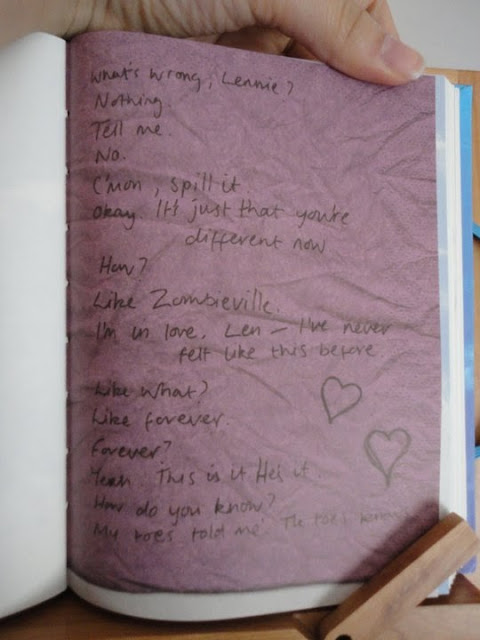 What's wrong, Lennie?
Nothing.
Tell me.
No.
C'mon, spill it.
Okay. It's just that you're
different now
How?
Like Zombieville.
I'm in love, Len – I've never
felt like this before.
Like what?
Like forever.
Forever?
Yeah. This is it. He's it.
How do you know?
My toes told me. The toes know.